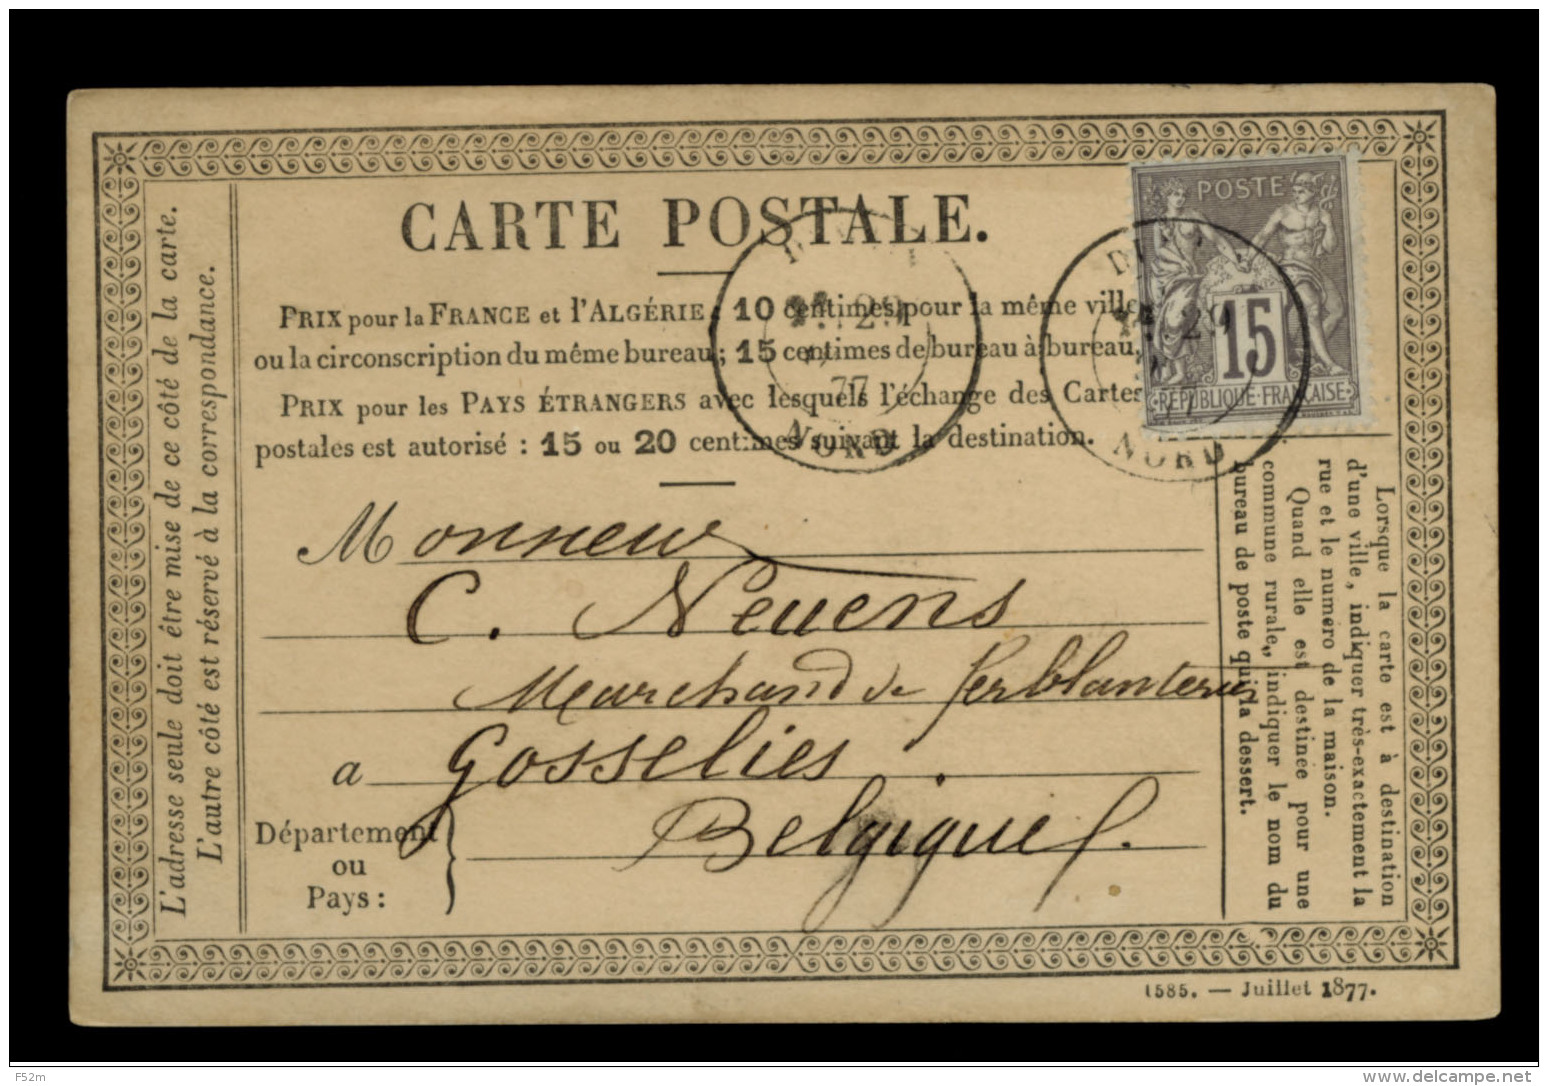 CARTE POSTALE.
PRIX pour la FRANCE et l'ALGÉRIE : 10 centimes pour la même ville
ou la circonscription du même bureau ; 15 centimes de bureau à bureau.
PRIX pour les PAYS ÉTRANGERS avec lesquels l'échange des Cartes
postales est autorisé : 15 ou 20 centimes suivant la destination.
POSTE
15
RÉPUBLIQUE FRANÇAISE
29
77
NORD
29
77
NORD
Monsieur
C. Neuens
Marchand de ferblanteries
a Gosselies.
Département
ou
Pays :
Belgique.
L'adresse seule doit être mise de ce côté de la carte.
L'autre côté est réservé à la correspondance.
Lorsque la carte est à destination
d'une ville, indiquer très-exactement la
rue et le numéro de la maison.
Quand elle est destinée pour une
commune rurale, indiquer le nom du
bureau de poste qui la dessert.
1585. — Juillet 1877.
F52m
delcampe.net